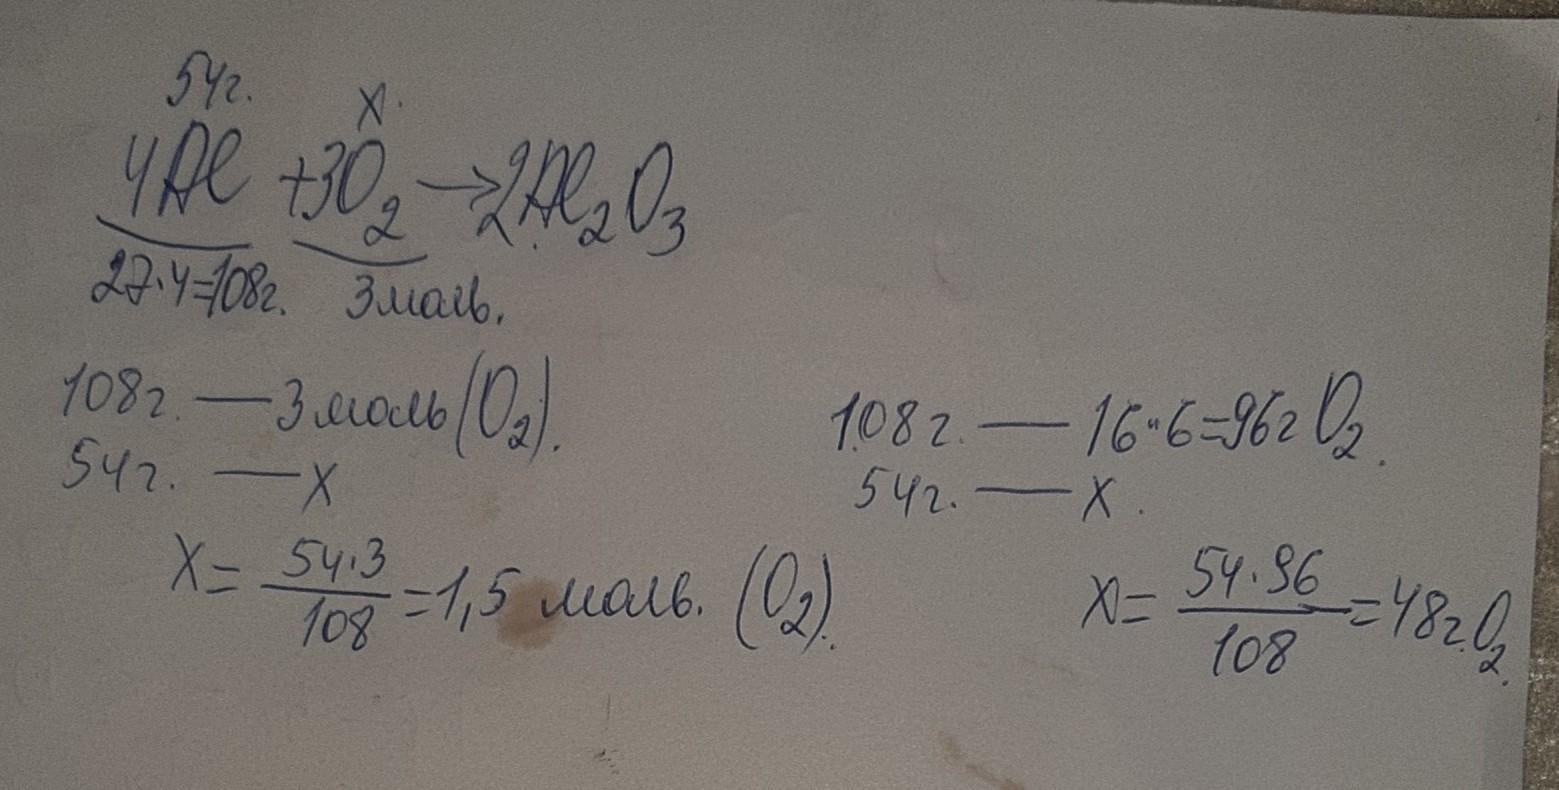 54г. х.
4Al + 3O₂ → 2Al₂O₃
27·4=108г. 3моль.
108г. — 3моль (O₂).
54г. — х
х = 54·3/108 = 1,5 моль. (O₂).
108г. — 16·6=96г O₂.
54г. — х.
х = 54·96/108 = 48г. O₂.